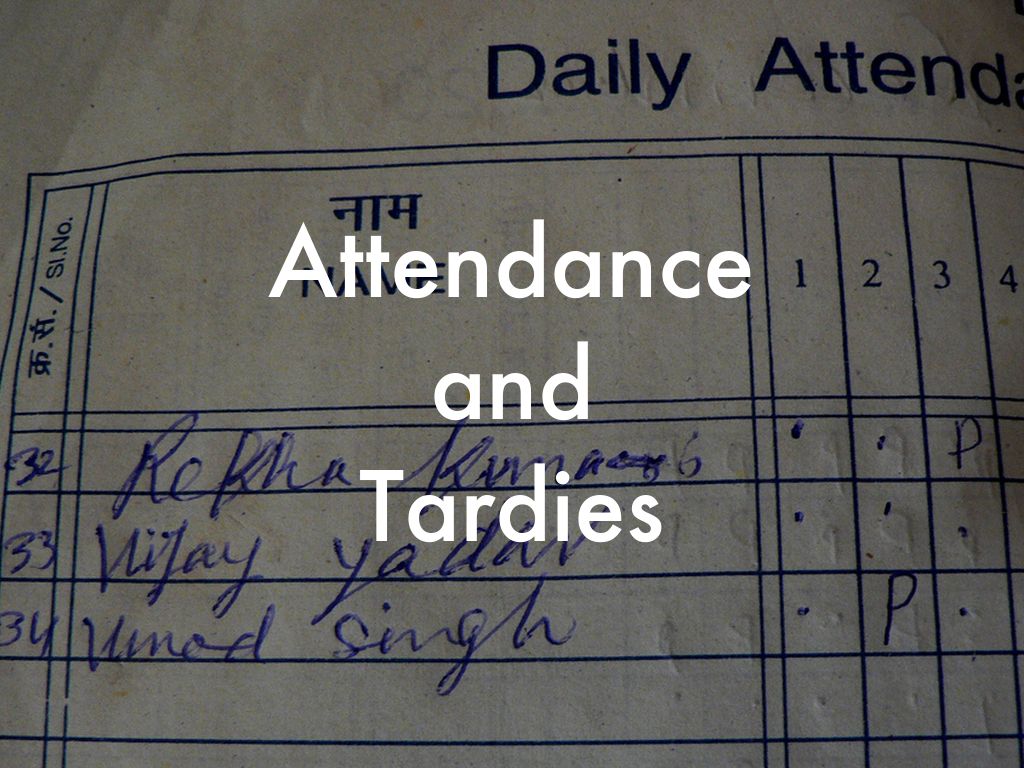 Daily Attenda
क्र.सं. / Sl.No.
नाम
NAME
1 2 3 4
Attendance
and
Tardies
32 Rekha Kumar P
33 Vijay yadav
34 Vinod Singh P